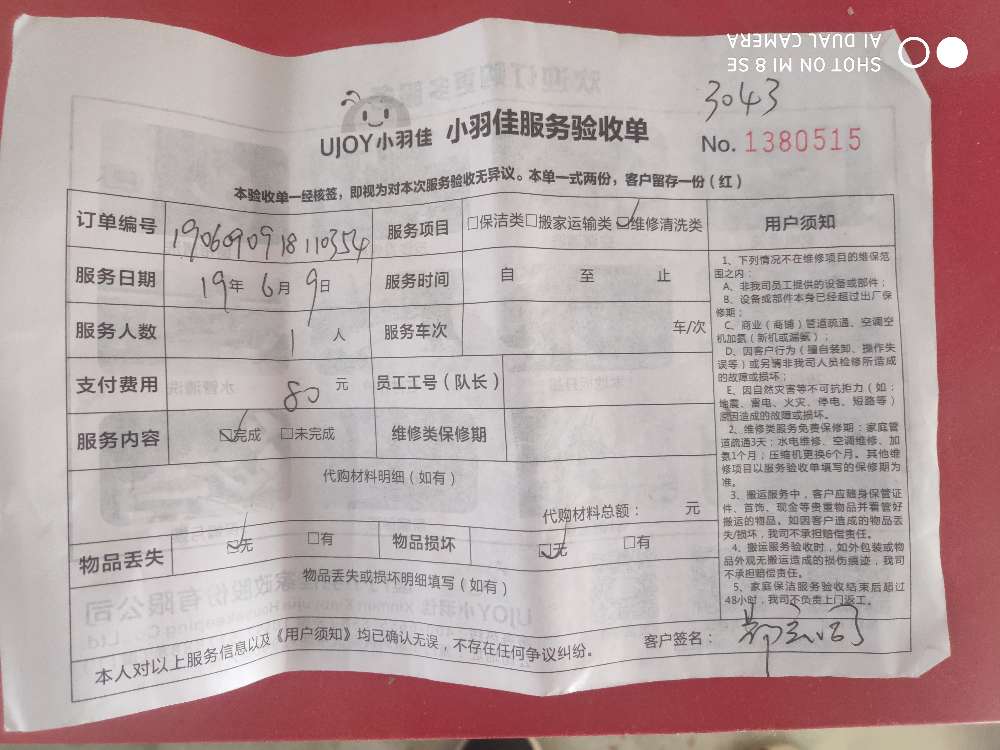 SHOT ON MI 8 SE
AI DUAL CAMERA
3043
UJOY小羽佳 小羽佳服务验收单
No. 1380515
本验收单一经核签，即视为对本次服务验收无异议。本单一式两份，客户留存一份（红）
订单编号 1906090918110354 服务项目 □保洁类□搬家运输类☑维修清洗类
服务日期 19年 6月 9日 服务时间 自 至 止
服务人数 1 人 服务车次 车/次
支付费用 80 元 员工工号（队长）
服务内容 ☑完成 □未完成 维修类保修期
代购材料明细（如有）
代购材料总额： 元
物品丢失 ☑无 □有 物品损坏 ☑无 □有
物品丢失或损坏明细填写（如有）
本人对以上服务信息以及《用户须知》均已确认无误，不存在任何争议纠纷。
客户签名：
用户须知
1、下列情况不在维修项目的维保范
围之内：
A、非我司员工提供的设备或部件；
B、设备或部件本身已经超过出厂保
修期；
C、商业（商铺）管道疏通、空调空
机加氨（新机或漏氨）；
D、因客户行为（擅自装卸、操作失
误等）或另请非我司人员检修所造成
的故障或损坏；
E、因自然灾害等不可抗拒力（如：
地震、雷电、火灾、停电、短路等）
原因造成的故障或损坏。
2、维修类服务免费保修期：家庭管
道疏通3天；水电维修、空调维修、加
氨1个月；压缩机更换6个月。其他维
修项目以服务验收单填写的保修期为
准。
3、搬运服务中，客户应随身保管证
件、首饰、现金等贵重物品并看管好
搬运的物品，如因客户造成的物品丢
失/损坏，我司不承担赔偿责任。
4、搬运服务验收时，如外包装或物
品外观无搬运造成的损伤痕迹，我司
不承担赔偿责任。
5、家庭保洁服务验收结束后超过
48小时，我司不负责上门返工。